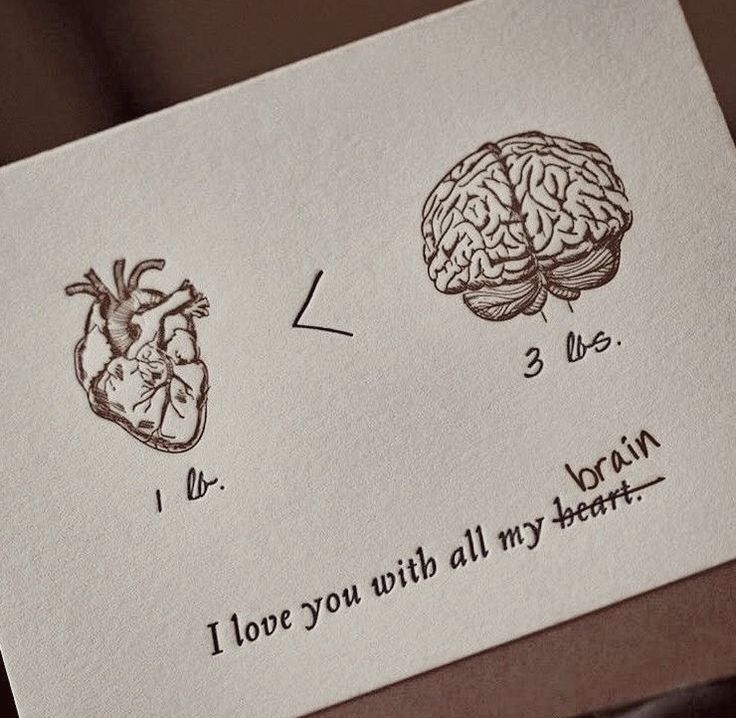 <
3 lbs.
1 lb.
brain
I love you with all my heart.